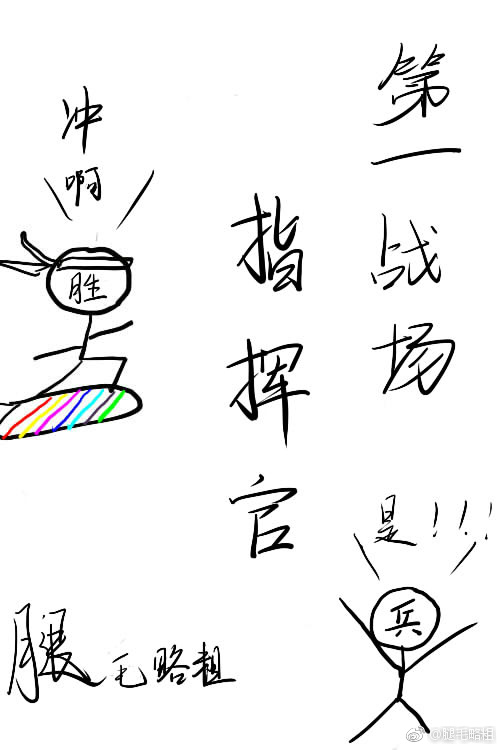 第一战场
指挥官
冲啊
胜
是！！！
兵
腿毛略粗
@腿毛略粗